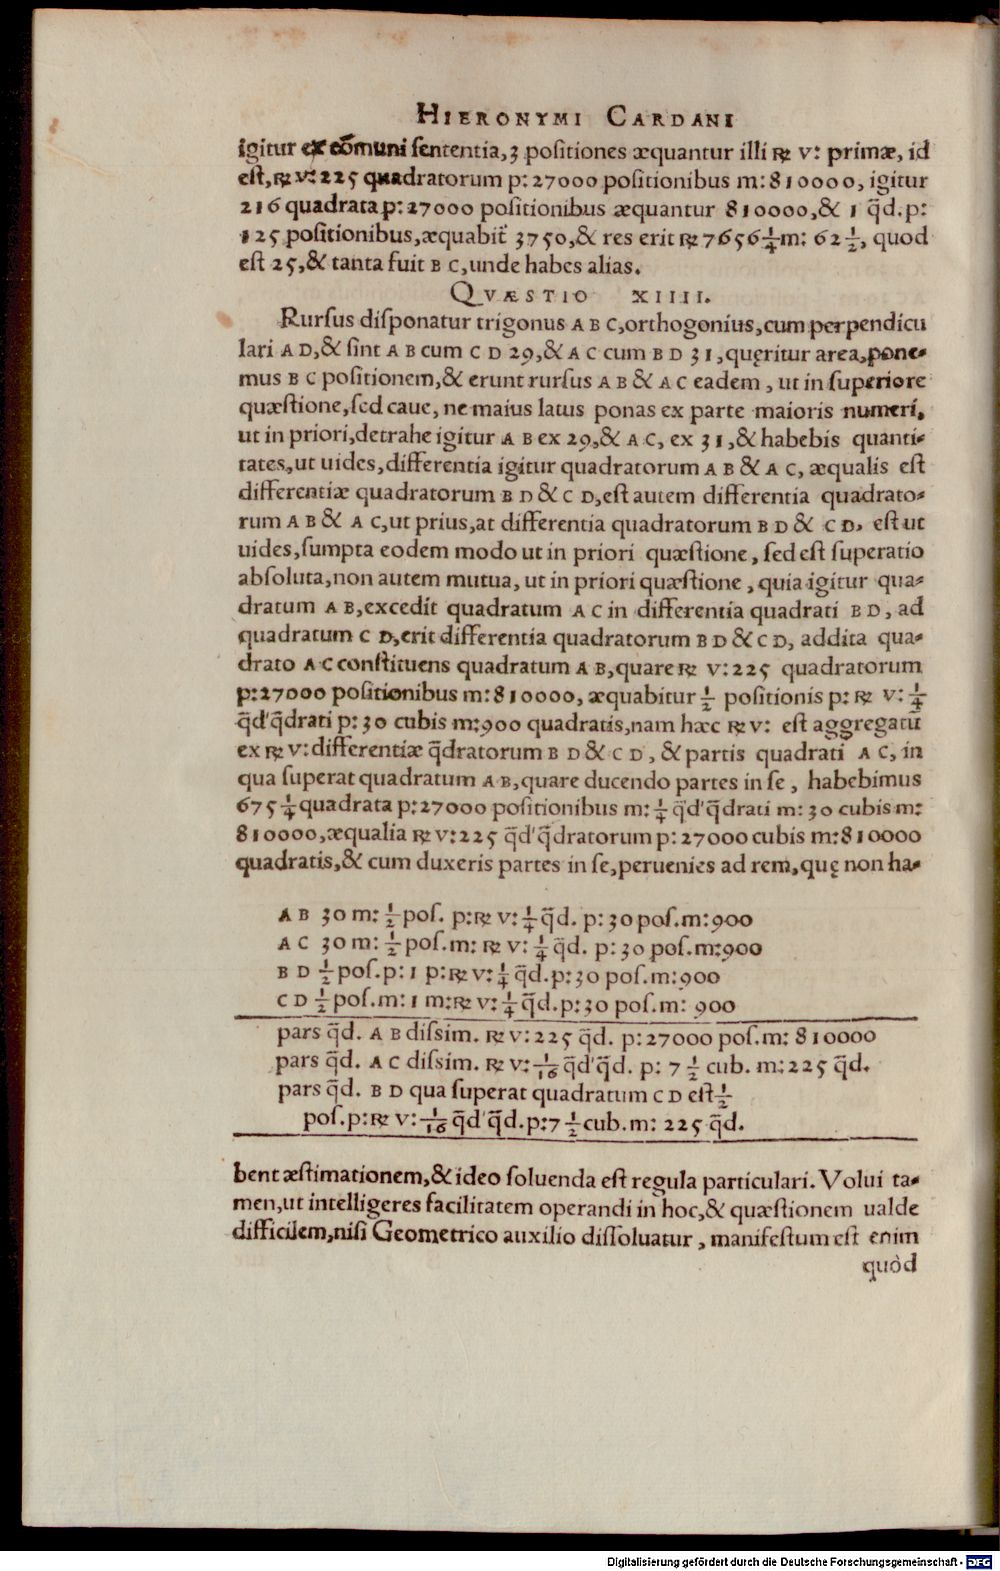 HIERONYMI CARDANI
igitur ex cõmuni sententia, 3 positiones æquantur illi ℞ v: primæ, id
est, ℞ v: 225 quadratorum p: 27000 positionibus m: 810000, igitur
216 quadrata p: 27000 positionibus æquantur 810000, & 1 q̃d. p:
125 positionibus, æquabit̃ 3750, & res erit ℞ 7656 1/4 m: 62 1/2, quod
est 25, & tanta fuit B C, unde habes alias.
QVÆSTIO XIIII.
Rursus disponatur trigonus A B C, orthogonius, cum perpendicu
lari A D, & sint A B cum C D 29, & A C cum B D 31, quęritur area, pone-
mus B C positionem, & erunt rursus A B & A C eadem, ut in superiore
quæstione, sed caue, ne maius latus ponas ex parte maioris numeri,
ut in priori, detrahe igitur A B ex 29, & A C, ex 31, & habebis quanti-
tates, ut uides, differentia igitur quadratorum A B & A C, æqualis est
differentiæ quadratorum B D & C D, est autem differentia quadrato-
rum A B & A C, ut prius, at differentia quadratorum B D & C D, est ut
uides, sumpta eodem modo ut in priori quæstione, sed est superatio
absoluta, non autem mutua, ut in priori quæstione, quia igitur qua-
dratum A B, excedit quadratum A C in differentia quadrati B D, ad
quadratum C D, erit differentia quadratorum B D & C D, addita qua-
drato A C constituens quadratum A B, quare ℞ v: 225 quadratorum
p: 27000 positionibus m: 810000, æquabitur 1/2 positionis p: ℞ v: 1/4
q̃d' q̃drati p: 30 cubis m: 900 quadratis, nam hæc ℞ v: est aggregatũ
ex ℞ v: differentiæ q̃dratorum B D & C D, & partis quadrati A C, in
qua superat quadratum A B, quare ducendo partes in se, habebimus
675 1/4 quadrata p: 27000 positionibus m: 1/4 q̃d' q̃drati m: 30 cubis m:
810000, æqualia ℞ v: 225 q̃d' q̃dratorum p: 27000 cubis m: 810000
quadratis, & cum duxeris partes in se, peruenies ad rem, quę non ha-
A B 30 m: 1/2 pos. p: ℞ v: 1/4 q̃d. p: 30 pos. m: 900
A C 30 m: 1/2 pos. m: ℞ v: 1/4 q̃d. p: 30 pos. m: 900
B D 1/2 pos. p: 1 p: ℞ v: 1/4 q̃d. p: 30 pos. m: 900
C D 1/2 pos. m: 1 m: ℞ v: 1/4 q̃d. p: 30 pos. m: 900
pars q̃d. A B dissim. ℞ v: 225 q̃d. p: 27000 pos. m: 810000
pars q̃d. A C dissim. ℞ v: 1/16 q̃d' q̃d. p: 7 1/2 cub. m: 225 q̃d.
pars q̃d. B D qua superat quadratum C D est 1/2
pos. p: ℞ v: 1/16 q̃d' q̃d. p: 7 1/2 cub. m: 225 q̃d.
bent æstimationem, & ideo soluenda est regula particulari. Volui ta-
men, ut intelligeres facilitatem operandi in hoc, & quæstionem ualde
difficilem, nisi Geometrico auxilio dissoluatur, manifestum est enim
quòd
Digitalisierung gefördert durch die Deutsche Forschungsgemeinschaft - DFG